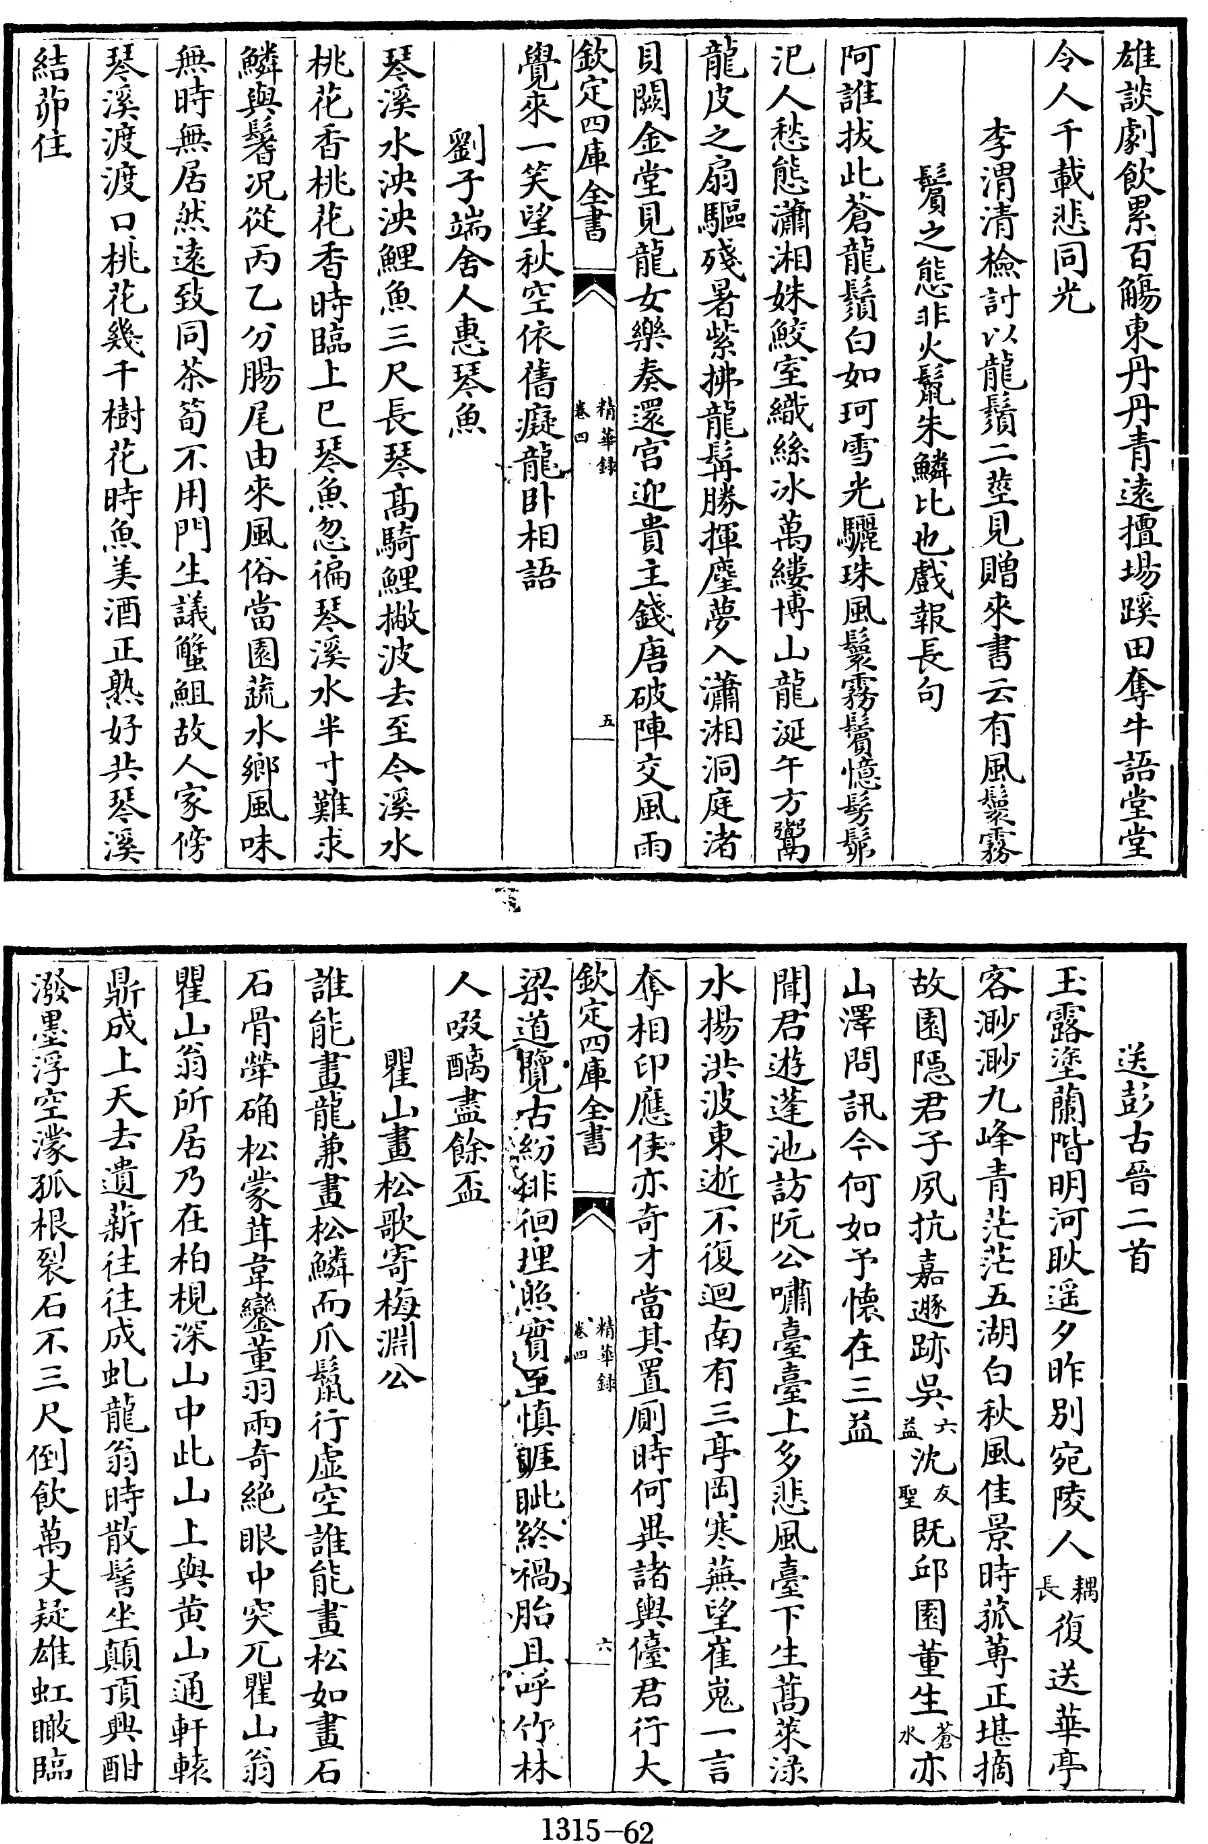 雄談劇飲累百觴東丹丹青遠擅場蹊田奪牛語堂堂
令人千載悲同光
李渭清檢討以龍鬚二莖見贈來書云有風鬟霧
鬢之態非火鬣朱鱗比也戲報長句
阿誰拔此蒼龍鬚白如珂雪光驪珠風鬟霧鬢憶髣髴
汜人愁態瀟湘姝鮫室織絲冰萬縷博山龍涎午方鬻
龍皮之扇驅殘暑紫拂龍髯勝揮麈夢入瀟湘洞庭渚
貝闕金堂見龍女樂奏還宮迎貴主錢唐破陣交風雨
欽定四庫全書
精華録
卷四
五
覺來一笑望秋空依舊癡龍卧相語
劉子端舍人惠琴魚
琴溪水泱泱鯉魚三尺長琴高騎鯉撇波去至今溪水
桃花香桃花香時臨上巳琴魚忽徧琴溪水半寸難求
鱗與鬐況從丙乙分腸尾由來風俗當園蔬水鄉風味
無時無居然遠致同茶筍不用門生議蟹䱉故人家傍
琴溪渡渡口桃花幾千樹花時魚美酒正熟好共琴溪
結茆住
送彭古晉二首
玉露塗蘭階明河耿遥夕昨别宛陵人耦長復送華亭
客渺渺九峰青茫茫五湖白秋風佳景時菰蓴正堪摘
故園隠君子夙抗嘉遯跡吳六益沈友聖既邱園董生蒼水亦
山澤問訊今何如予懷在三益
聞君遊蓬池訪阮公嘯臺臺上多悲風臺下生蒿萊渌
水揚洪波東逝不復迴南有三亭岡寒蕪望崔嵬一言
奪相印應侯亦奇才當其置厠時何異諸輿儓君行大
欽定四庫全書
精華録
卷四
六
梁道覽古紛徘徊埋照實至慎睚眦終禍胎且呼竹林
人啜醨盡餘盃
瞿山畫松歌寄梅淵公
誰能畫龍兼畫松鱗而爪鬣行虚空誰能畫松如畫石
石骨犖确松蒙茸韋鑾董羽兩奇絶眼中突兀瞿山翁
瞿山翁所居乃在柏梘深山中此山上與黄山通軒轅
鼎成上天去遺薪往往成虬龍翁時散髻坐顛頂興酣
潑墨浮空濛孤根裂石不三尺倒飲萬丈疑雄虹瞰臨
1315-62